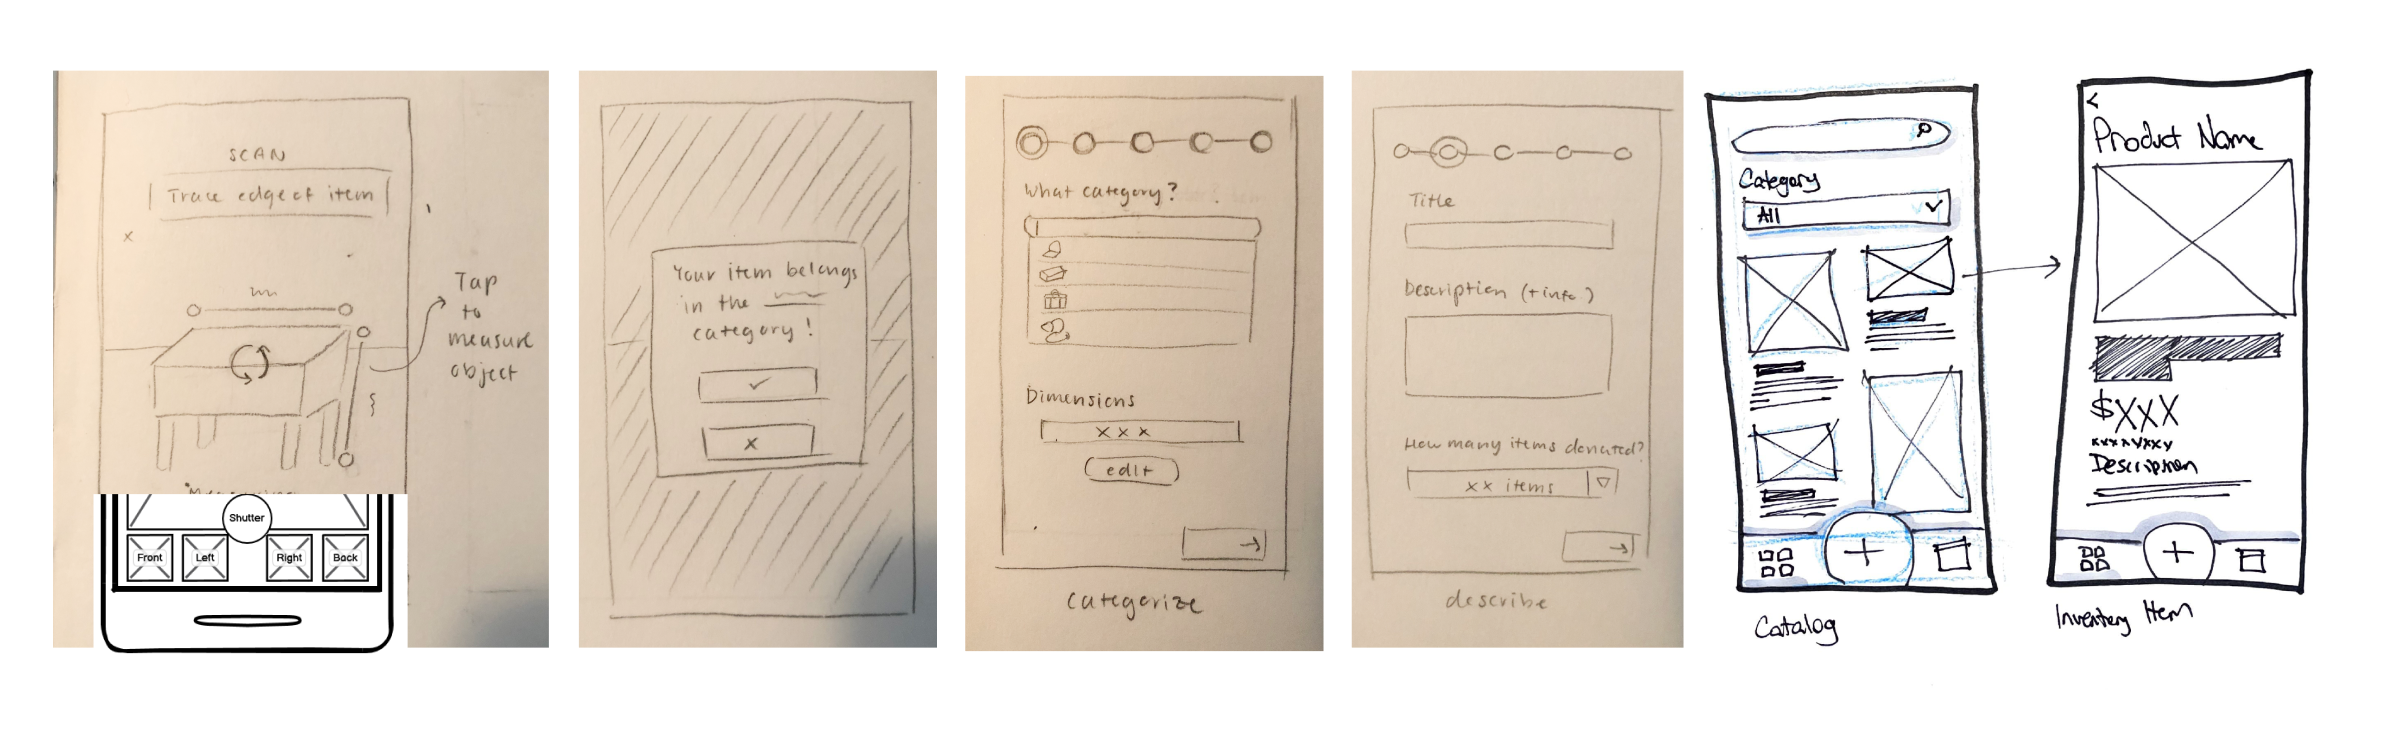 SCAN
Trace edge of item
x
Tap
to
measure
object
Shutter
Front
Left
Right
Back
Your item belongs
in the
category!
✓
x
What category?
Dimensions
x x x
edit
→
categorize
Title
Description (+info.)
How many items donated?
xx items
→
describe
Category
All
+
Catalog
<
Product Name
$XXX
Description
+
Inventory Item